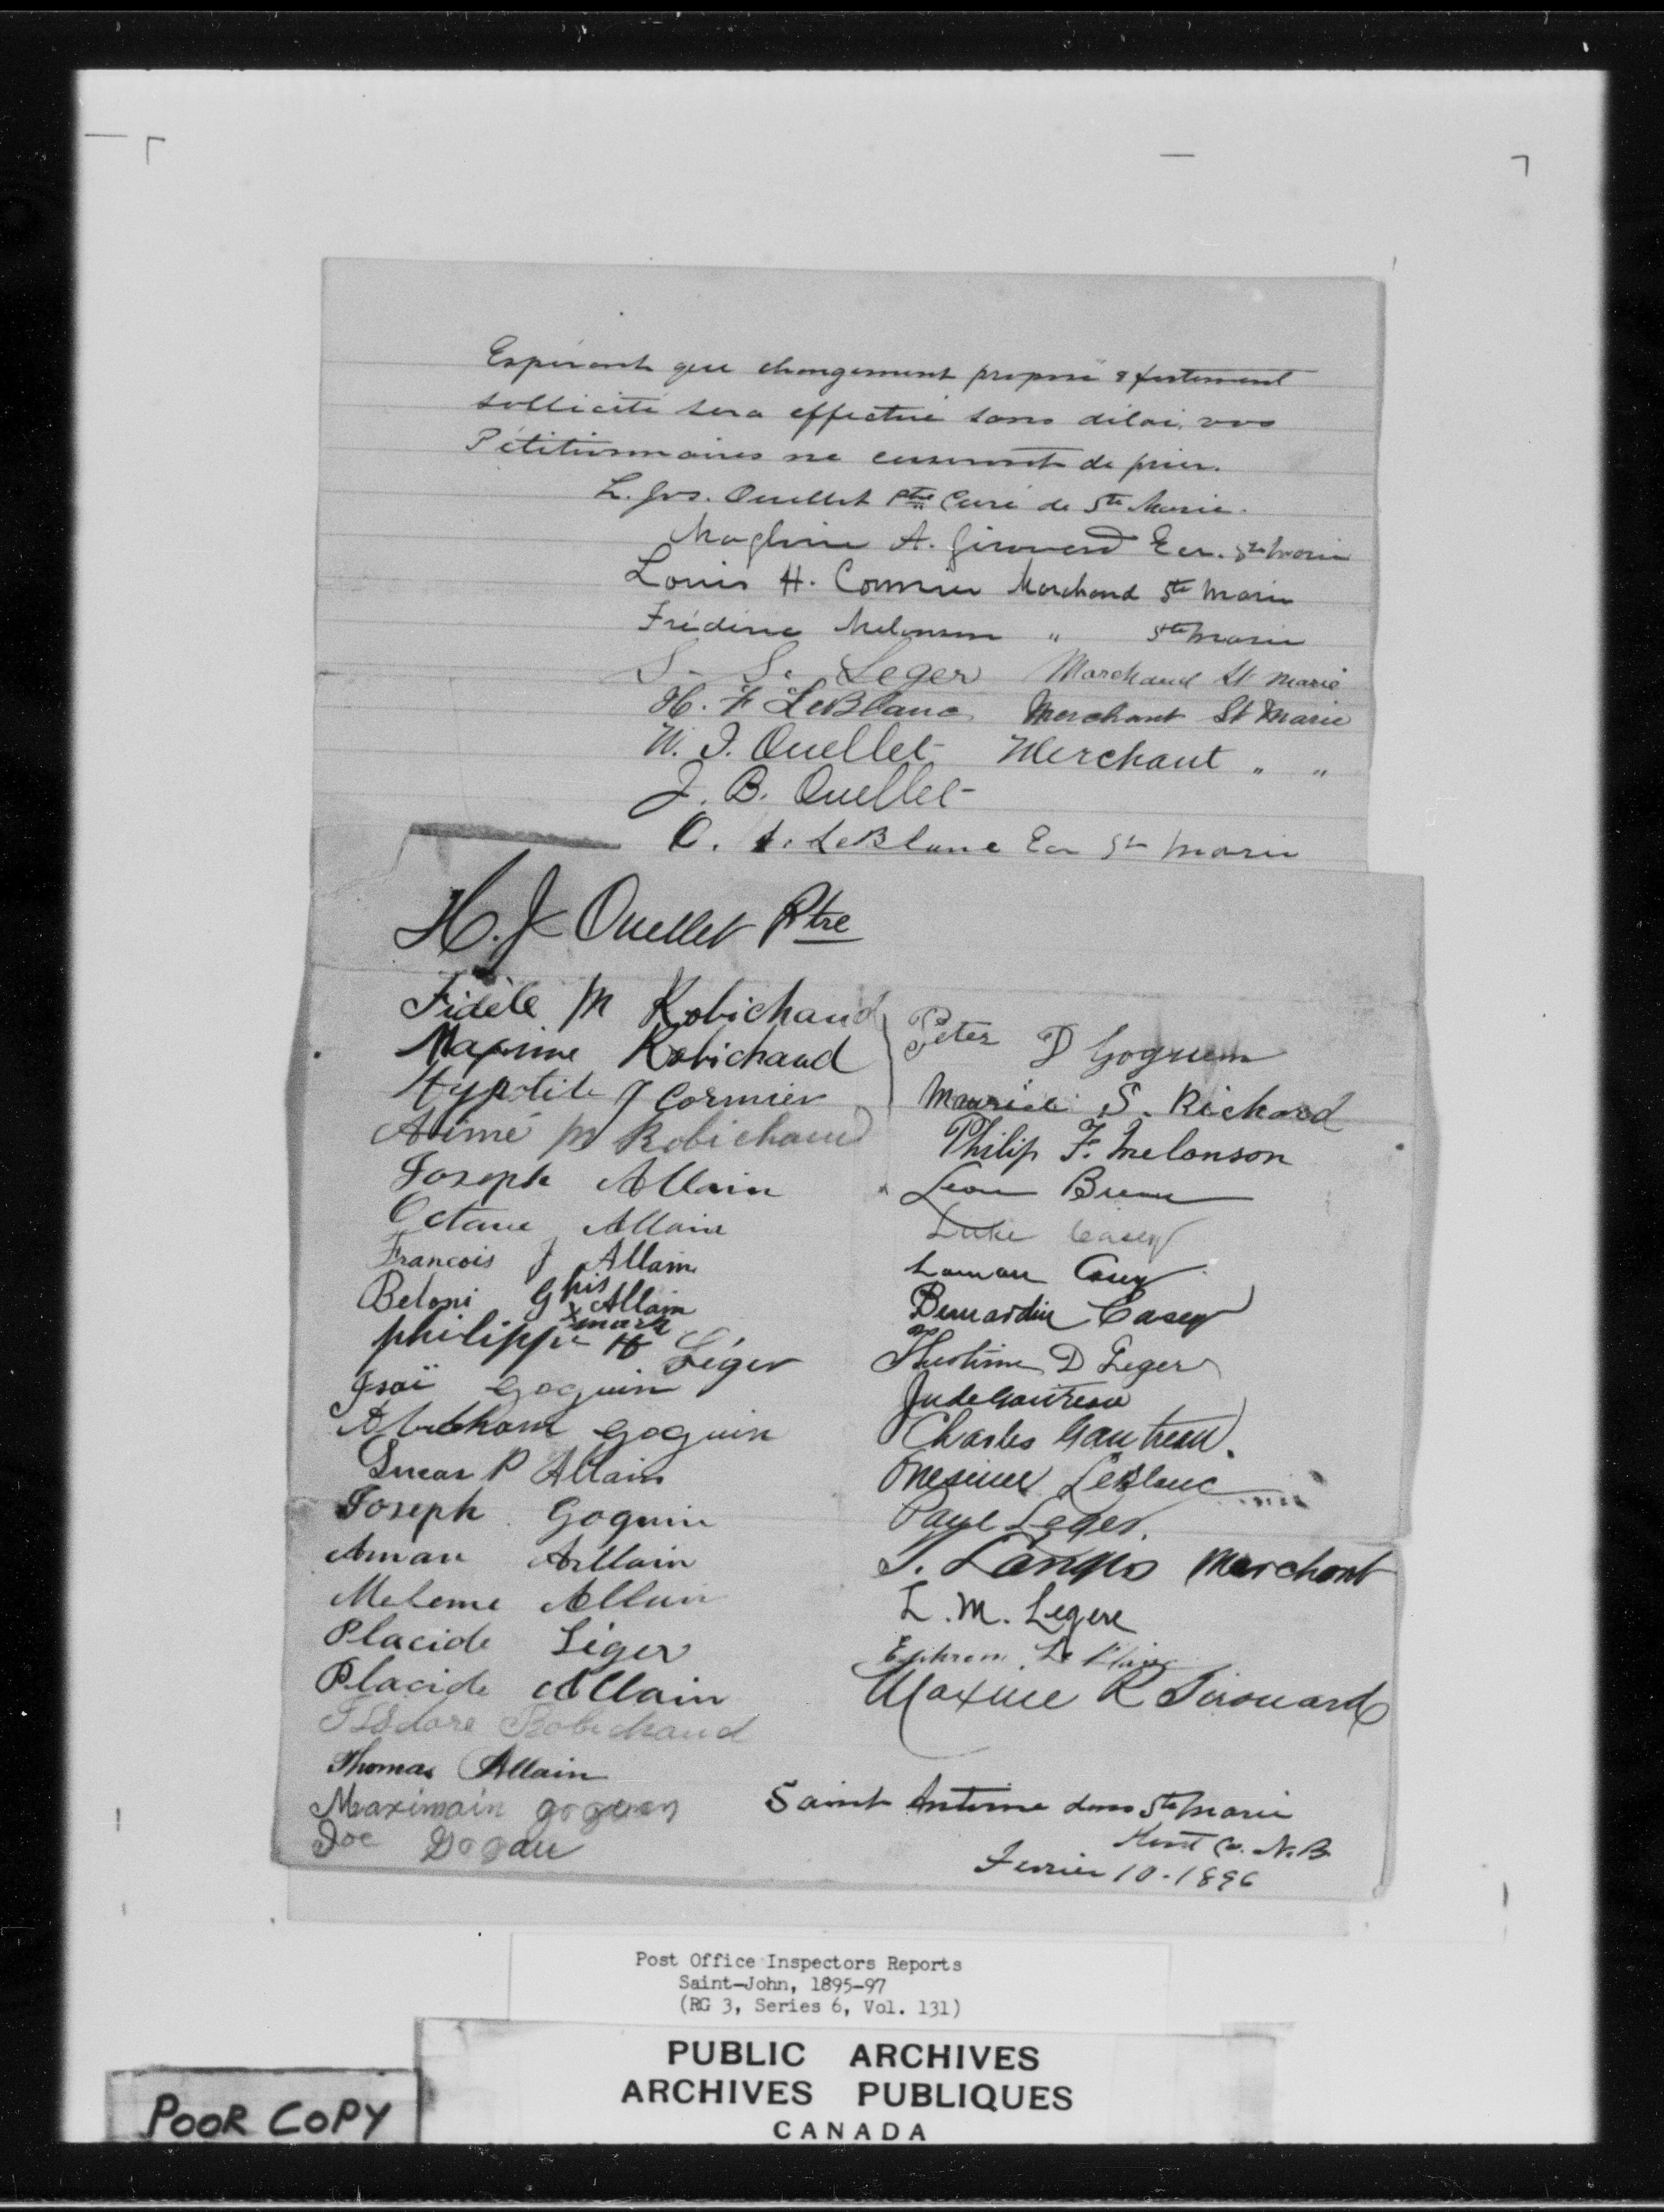 Espérant que changement proposé & fortement
sollicité sera effectué sans délai, vos
Pétitionnaires ne cesseront de prier.
L. Jos. Ouellet Ptre Curé de Ste Marie.
A. Girouard Ecr. Ste Marie
Louis H. Cormier Marchand Ste Marie
Fréderic Melonson " Ste Marie
S. S. Leger Marchand St Marie
H. F LeBlanc Merchant St Marie
W. J. Ouellet Merchant " "
J. B. Ouellet
O. LeBlanc Ecr Ste Marie
H. J Ouellet Ptre
Fidèle M Robichaud
Maxime Robichaud
Hypolite J Cormier
Aimé M Robichaud
Joseph Allain
Octave Allain
Francois J Allain
Beloni G his x mark Allain
philippe H Léger
Isaï Goguin
Abraham Goguin
Lucas P Allain
Joseph Goguin
Aman Allain
Meleme Allain
Placide Léger
Placide Allain
Isidore Robichaud
Thomas Allain
Maximain goguen
Joe Gogau
Peter D Goguen
Maurice S. Richard
Philip F. Melonson
Leon Breau
Luke Casey
Casey
Bernardin Casey
D Leger
Jude Gautreau
Charles Gautreau.
Onesime LeBlanc
Paul Leger.
T. Langis Merchant
L. M. Legere
Ephrem Le Blanc
Maxime R Girouard
Saint Antoine dans Ste Marie
Kent Co. N.B.
Fevrier 10 - 1896
Post Office Inspectors Reports
Saint-John, 1895-97
(RG 3, Series 6, Vol. 131)
PUBLIC ARCHIVES
ARCHIVES PUBLIQUES
CANADA
POOR COPY